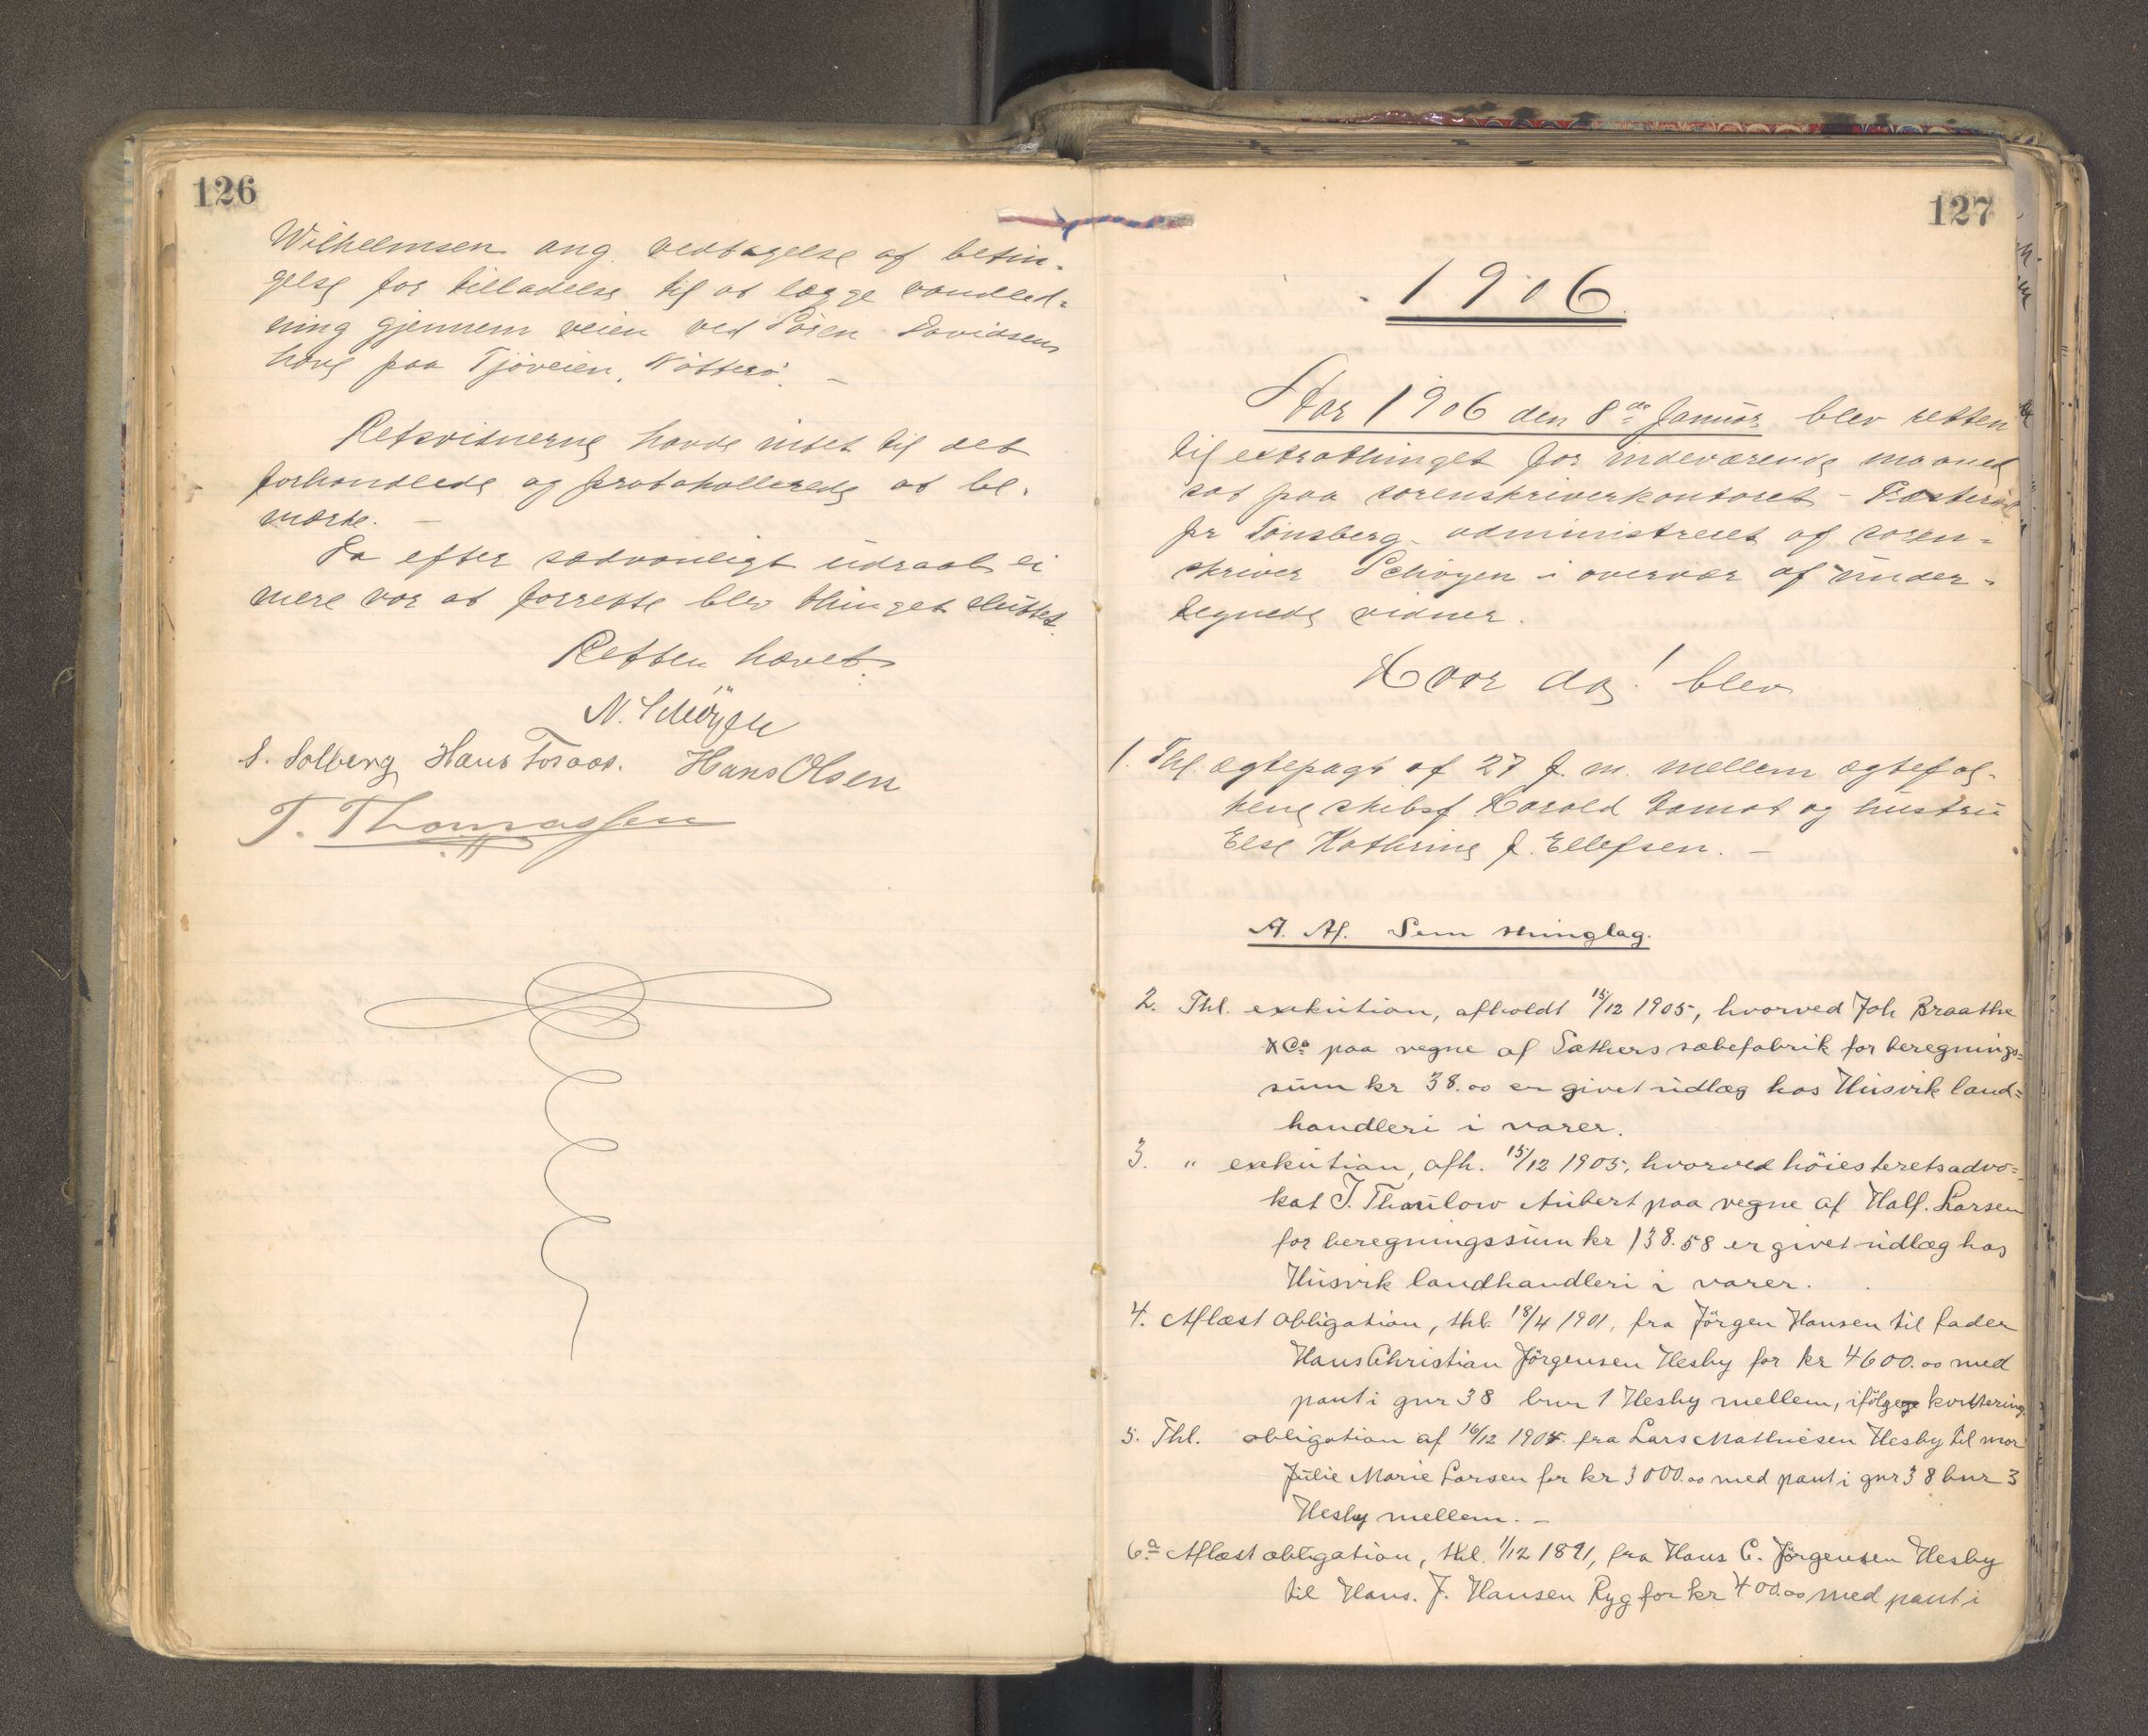 126
Wilhelmsen ang. vedtagelse af betin-
gelse for tilladelse til at lægge vandled-
ning gjennem veien ved Sören Davidsens
have paa Tjöveien, Nötterö. –
Retsvidnerne havde intet til det
forhandlede og protokollerede at be-
mærke. –
Da efter sædvanligt udraab ei
mere var at forrette blev thinget sluttet.
Retten hævet.
N. Schöyen
S. Solberg Hans Foraas. Hans Olsen
T. Thomassen
127
1906.
Aar 1906 den 8de Januar blev retten
til extrathinget for indeværende maaned
sat paa sorenskriverkontoret – Træsteröd
pr Tönsberg – administreret af soren-
skriver Schöyen i overvær af under-
tegnede vidner.
Hvor da! blev
1. Thl. ægtepagt af 27 f. m. mellem ægtefol-
kene skibsf Harald Tomat og hustru
Else Kathrine f. Ellefsen. –
A. Af. Sem thinglag.
2. Thl. exekution, afholdt 15/12 1905, hvorved Joh Braathe
& Co paa vegne af Sæthers sæbefabrik for beregnings-
sum kr 38.00 er givet udlæg hos Husvik land-
handleri i varer.
3. " exekution, afh. 15/12 1905, hvorved höiesteretsadvo-
kat J. Thaulow Aubert paa vegne af Half. Larsen
for beregningssum kr 138.58 er givet udlæg hos
Husvik landhandleri i varer.
4. Aflæst obligation, thl. 18/4 1901, fra Jörgen Hansen til fader
Hans Christian Jörgensen Hesby for kr 4600.00 med
pant i gnr 38 bnr 1 Hesby mellem, ifölge kvittering.
5. Thl. obligation af 16/12 1905 fra Lars Mathiesen Hesby til mor
Julie Marie Larsen for kr 3000.00 med pant i gnr 38 bnr 3
Hesby mellem. –
6a Aflæst obligation, thl. 1/12 1891, fra Hans C. Jörgensen Hesby
til Hans. J. Hansen Ryg for kr 400.00 med pant i